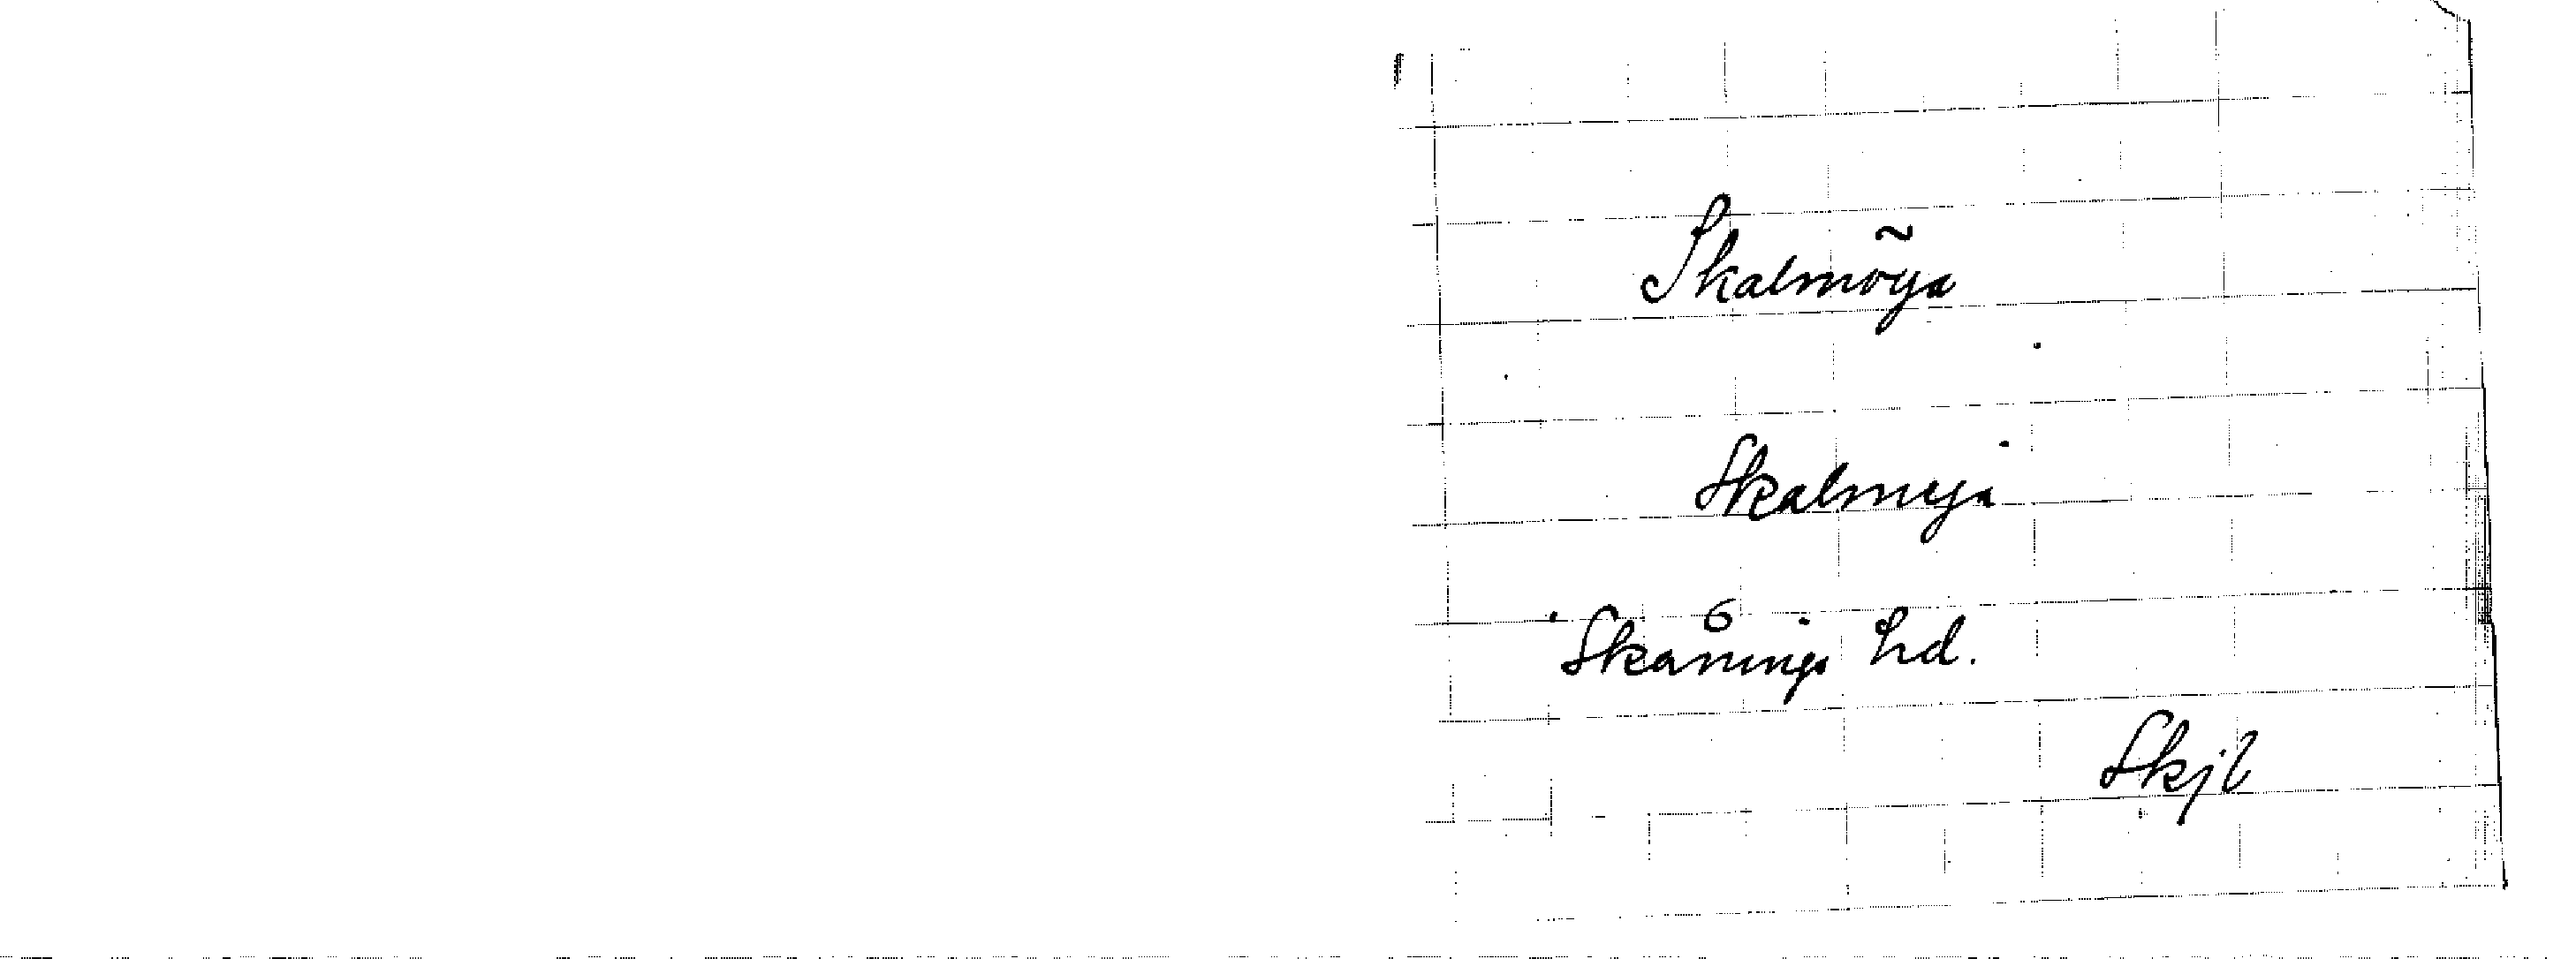 Skalmöya
Skalmeja
Skånings hd.
Skjl